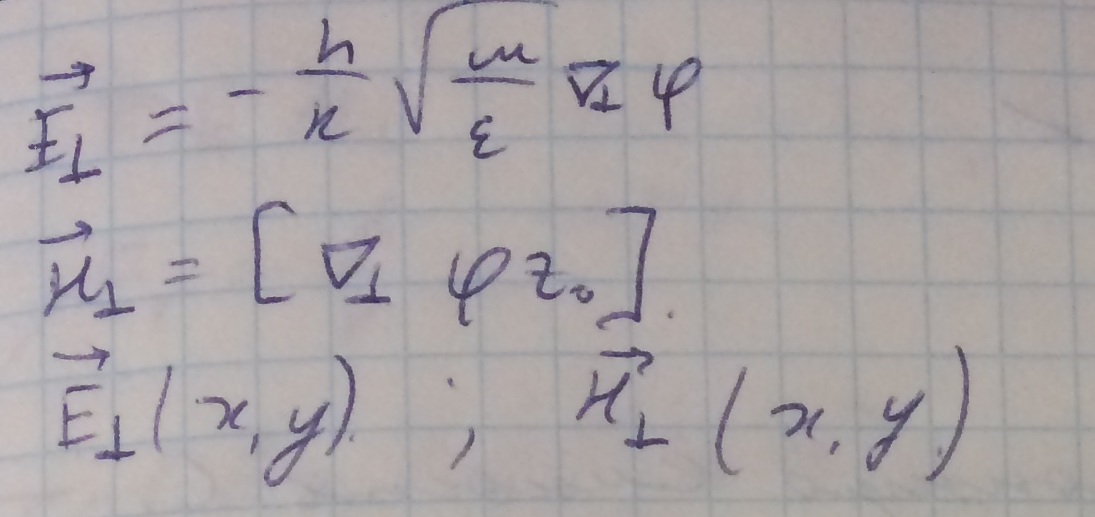 $\vec{E}_{\perp} = -\frac{h}{k} \sqrt{\frac{m}{\varepsilon}} \nabla_{\perp} \varphi$
$\vec{H}_{\perp} = [\nabla_{\perp} \varphi z_0].$
$\vec{E}_{\perp}(x, y) ; \vec{H}_{\perp}(x, y)$